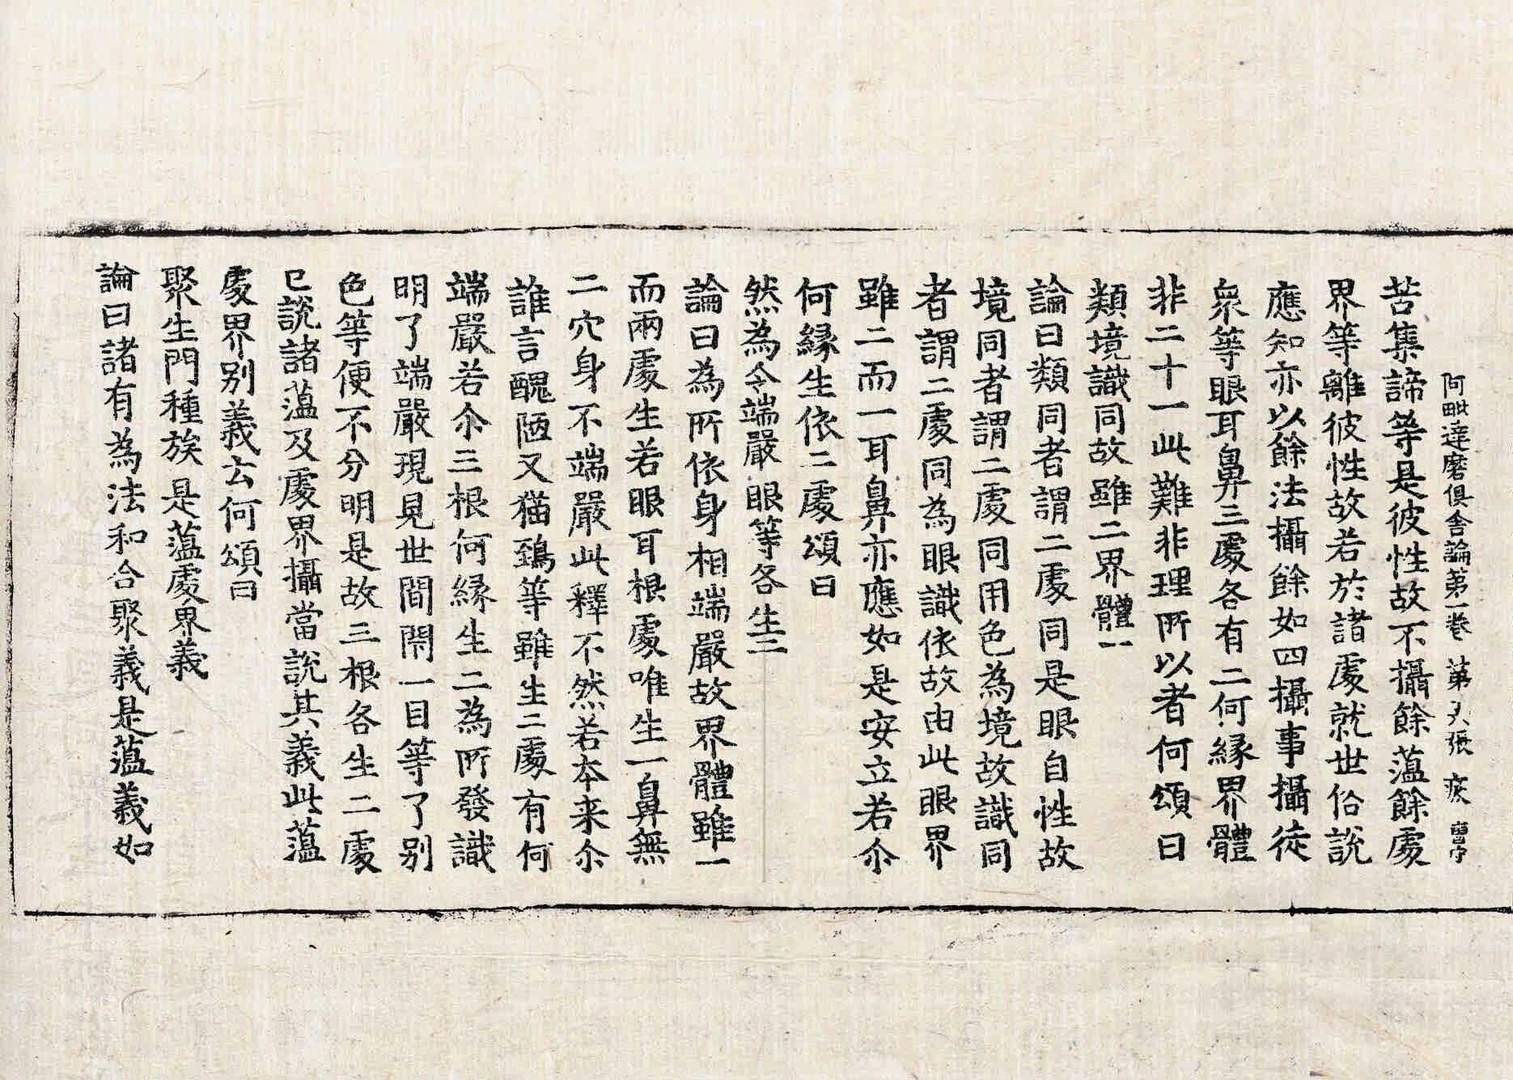 阿毗達磨俱舍論第一卷　第　張　疲
苦集諦等是彼性故不攝餘蘊餘處
界等離彼性故若於諸處就世俗說
應知亦以餘法攝餘如四攝事攝徒
衆等眼耳鼻三處各有二何緣界體
非二十一此難非理所以者何頌曰
類境識同故雖二界體一
論曰類同者謂二處同是眼自性故
境同者謂二處同用色為境故識同
者謂二處同為眼識依故由此眼界
雖二而一耳鼻亦應如是安立若尒
何緣生依二處頌曰
然為令端嚴眼等各生二
論曰為所依身相端嚴故界體雖一
而兩處生若眼耳根處唯生一鼻無
二穴身不端嚴此釋不然若本来尒
誰言醜陋又猫鵄等雖生二處有何
端嚴若尒三根何緣生二為所發識
明了端嚴現見世間閇一目等了別
色等便不分明是故三根各生二處
已說諸蘊及處界攝當說其義此蘊
處界別義云何頌曰
聚生門種族是蘊處界義
論曰諸有為法和合聚義是蘊義如